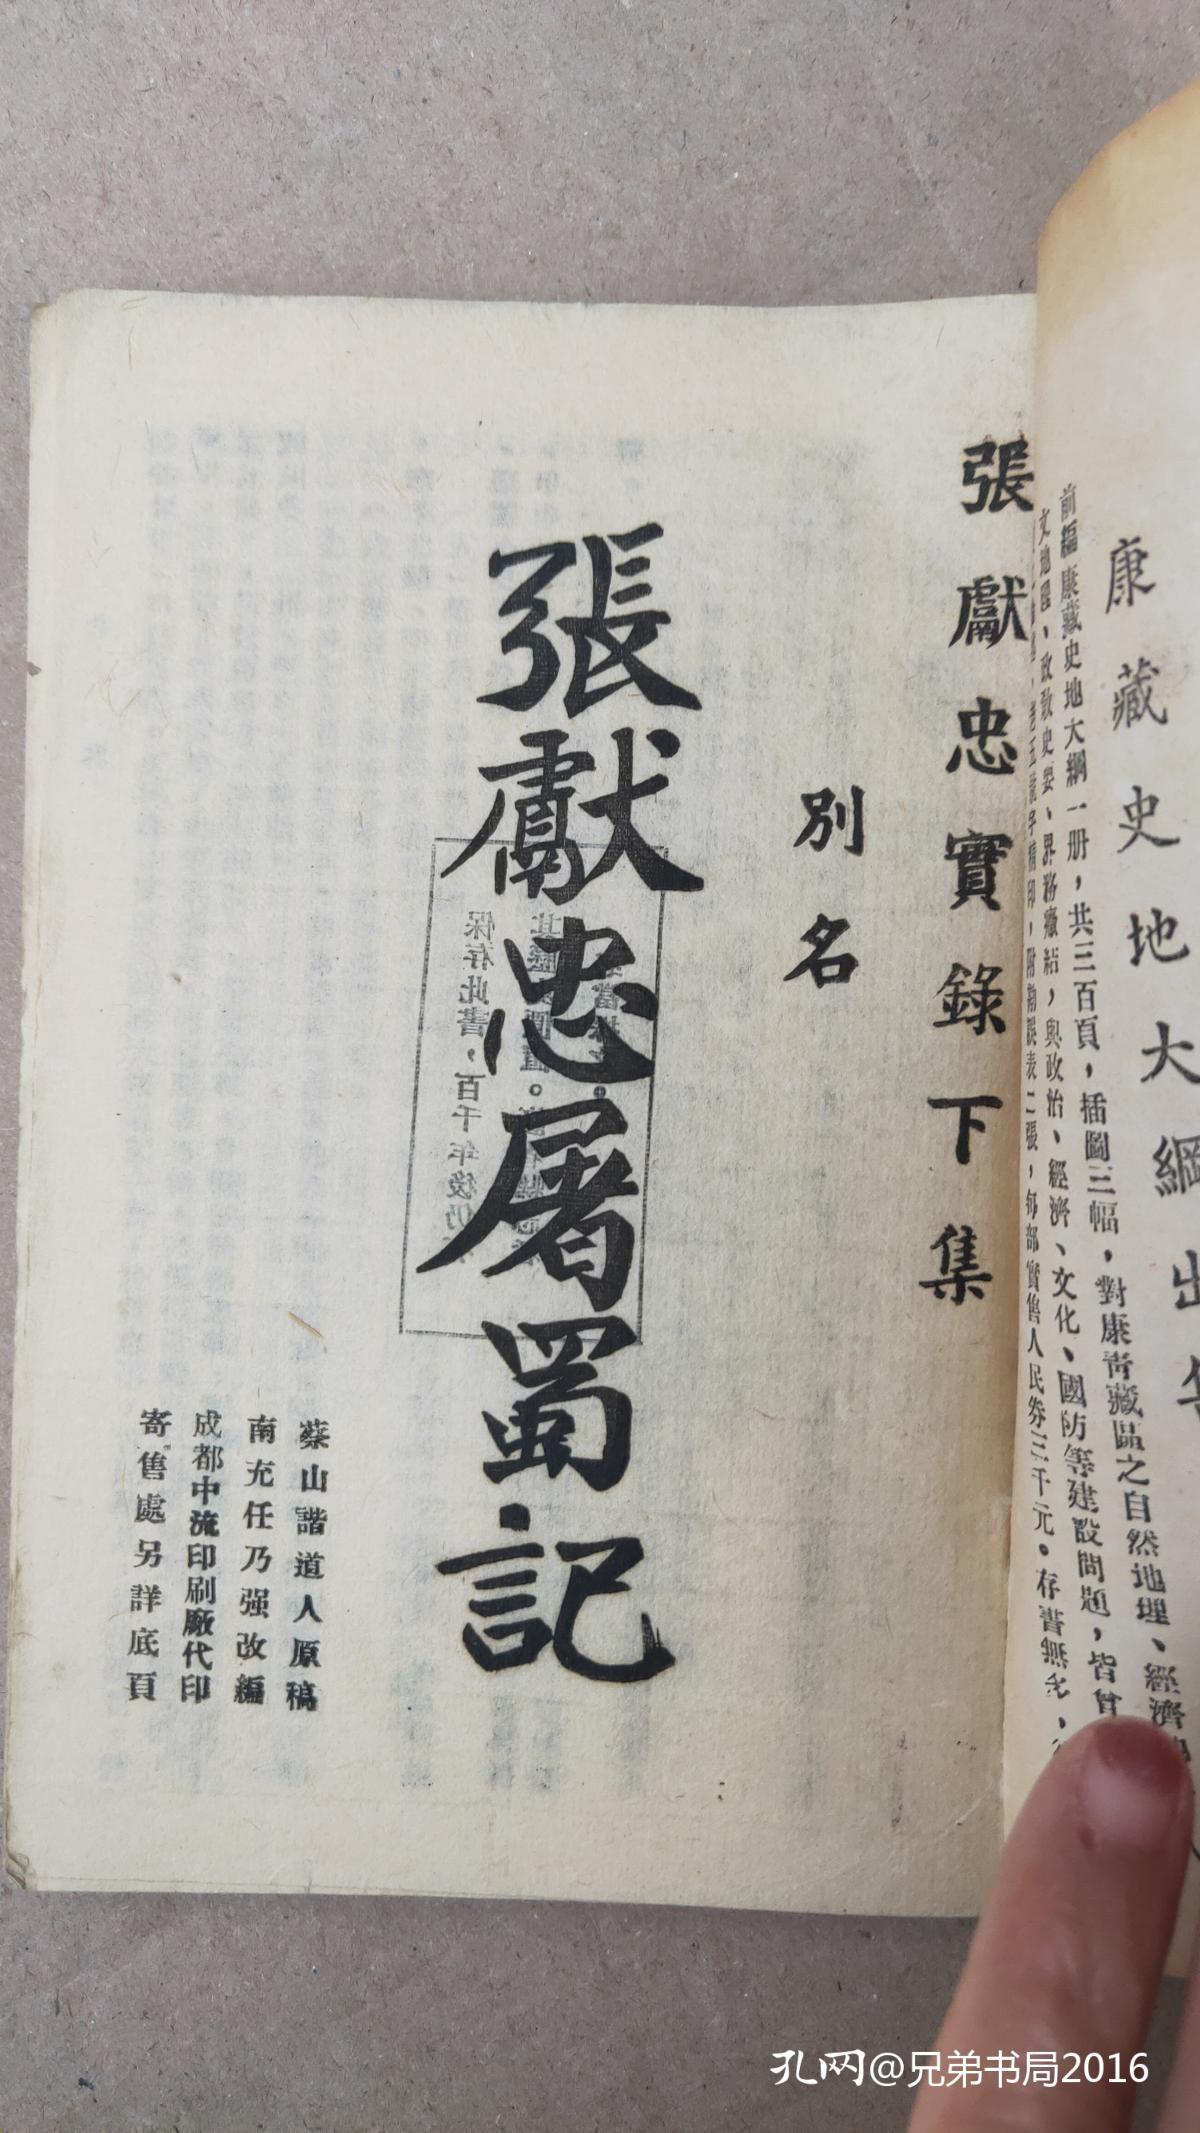 康藏史地大綱出售
前編康藏史地大綱一册，共三百頁，插圖三幅，對康青藏區之自然地理、經濟
文地理、政教史要、界務癥結，與政治、經濟、文化、國防等建設問題，皆
老五號字精印，附勘誤表二張，每部實售人民券三千元。存書無多，
張獻忠實錄下集
別名
張獻忠屠蜀記
保存此書，百千年後仍
蔡山諧道人原稿
南充任乃强改編
成都中流印刷廠代印
寄售處另詳底頁
孔网@兄弟书局2016